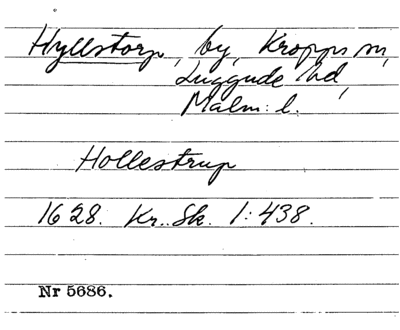 Hyllstorp, by, Kropps sn,
Luggude hd,
Malm: l.
Hollestrup
1628. Kr. Sk. 1:438.
Nr 5686.